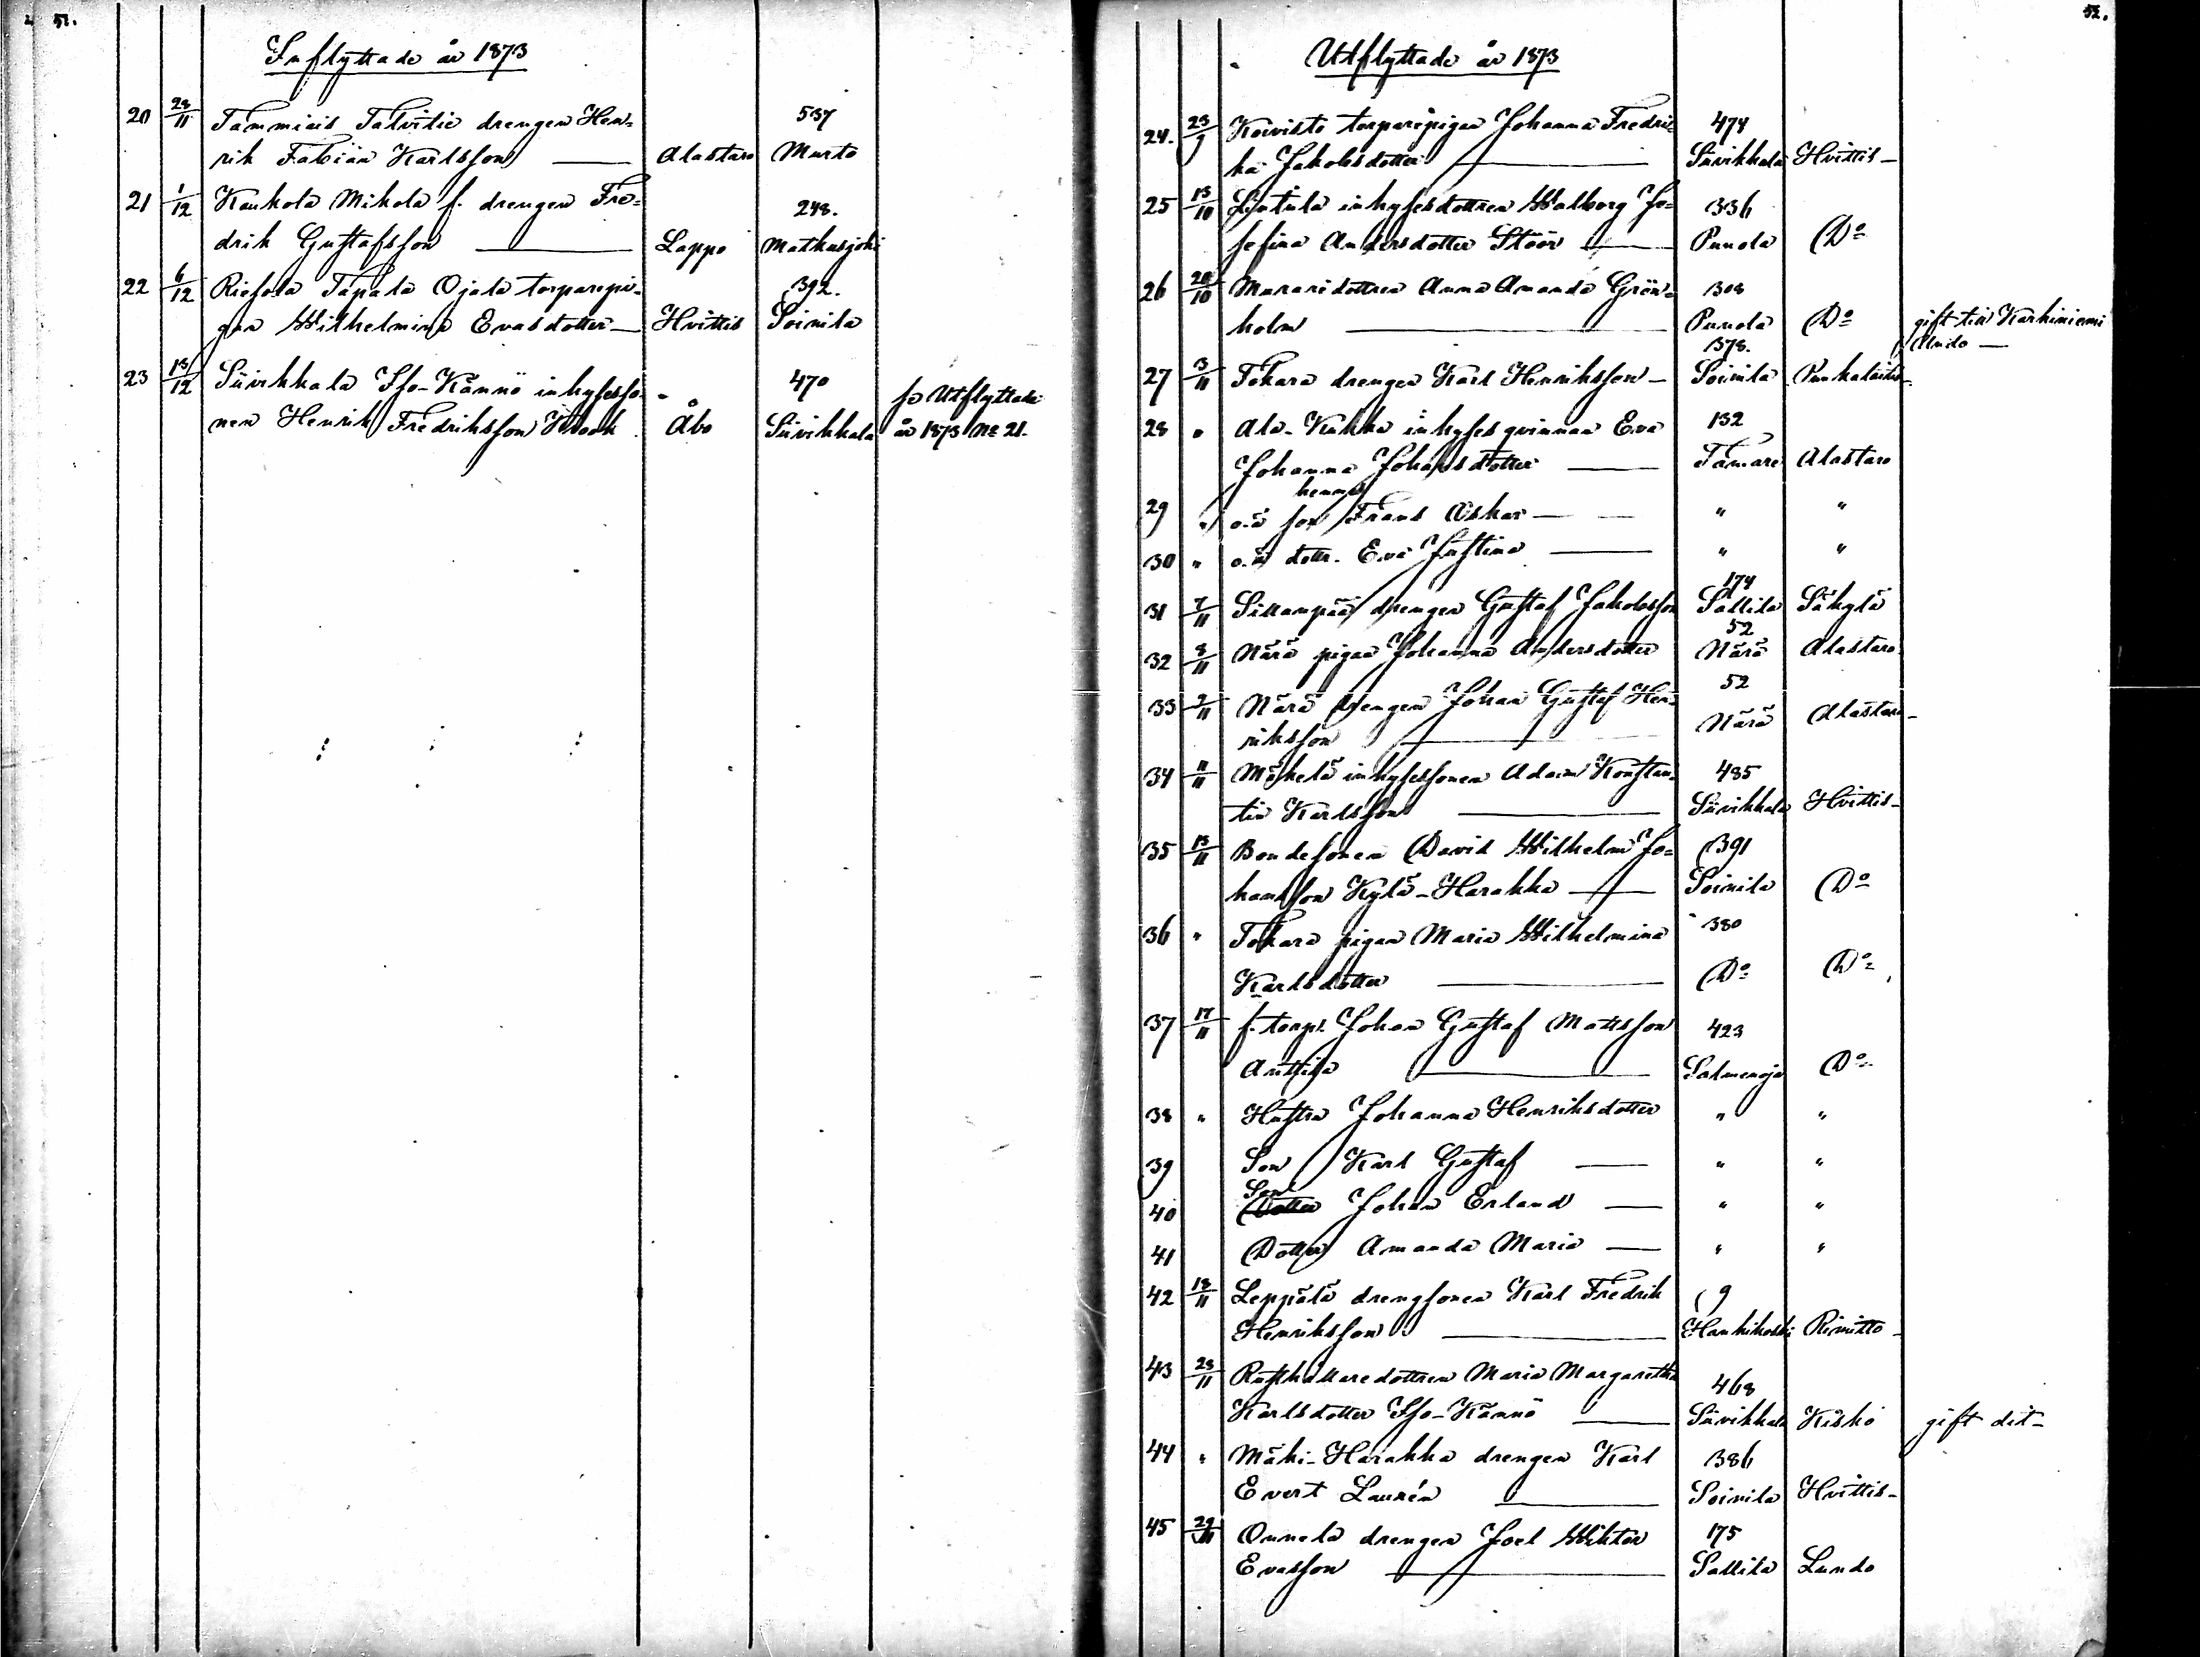 51.
Inflyttade år 1873
20 28/11 Tammiais Talvitie drengen Hen= 537
rik Fabian Karlsson — Alastaro Murto
21 1/12 Kauhola Mikola f. drengen Fre= 248.
drik Gustafsson — Loppo Matkusjoki
22 6/12 Riesola Tapala Ojala torparepi= 392.
gan Wilhelmina Evasdotter — Hvittis Soinila
23 13/12 Siivikkala Iso-Kännö inhysesso= 470 jo Utflyttade
nen Henrik Fredriksson Krook Åbo Siivikkala år 1873 No 21.
52.
Utflyttade år 1873
24. 23/9 Koivisto torparepigan Johanna Fredri= 474
ka Jakobsdotter — Siivikkala Hvittis —
25 13/10 Lintula inhysesdottren Walborg Jo= 336
sefina Andersdotter Stöör — Punola Do
26 20/10 Muraredottren Anna Amanda Grön= 308
holm — Punola Do gift till Karhiniemi
378. Undo —
27 3/11 Tokara drengen Karl Henriksson — Soinila Punkalaidun
28 " Ala-Kukka inhyses qvinnan Eva 132
Johanna Johansdotter — Tamare Alastaro
hennes
29 " o.ä son Frans Oskar — " "
30 " o.ä dottr. Eva Justina — " "
174
31 7/11 Sillanpää drengen Gustaf Jakobsson Sallila Säkylä
52
32 8/11 Närä pigan Johanna Andersdotter Närä Alastaro
33 9/11 Närä drengen Johan Gustaf Hen= 52
riksson — Närä Alastaro —
34 11/11 Mäkelä inhysessonen Adam Konstan= 485
tin Karlsson — Siivikkala Hvittis —
35 13/11 Bondesonen David Wilhelm Jo= 391
hansson Kylä-Harakka — Soinila Do
36 " Tokara pigan Maria Wilhelmina 380
Karlsdotter — Do Do
37 17/11 f. torp. Johan Gustaf Mattsson 423
Anttila — Salmenoja Do
38 " Hustru Johanna Henriksdotter " "
39 Son Karl Gustaf — " "
Son
40 Dotter Johan Erland — " "
41 Dotter Amanda Maria — " "
42 18/11 Leppälä drengsonen Karl Fredrik 9
Henriksson — Hankikoski Rimitto —
43 28/11 Rusthållaredottren Maria Margaretha 468
Karlsdotter Iso-Kännö — Siivikkala Kisko gift dit —
44 " Mäki-Harakka drengen Karl 386
Evert Laurén — Soinila Hvittis —
45 29/11 Onnela drengen Joel Wiktor 175
Evasson — Sallila Lundo